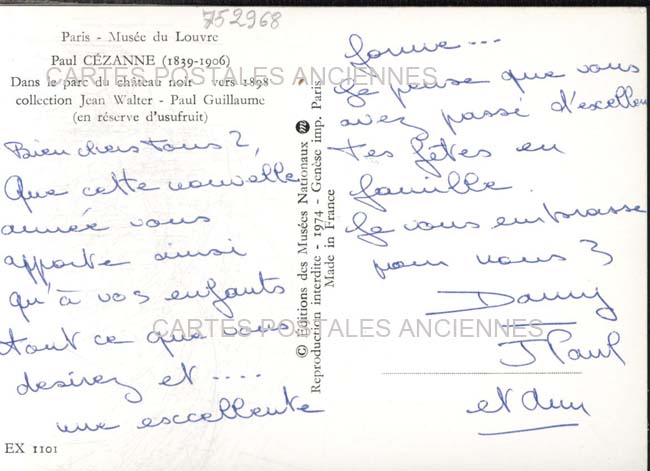 752968
Paris - Musée du Louvre
Paul CÉZANNE (1839-1906)
Dans le parc du château noir vers 1898
collection Jean Walter - Paul Guillaume
(en réserve d'usufruit)
CARTES POSTALES ANCIENNES
Bien chers tous 2,
Que cette nouvelle
année vous
apporte ainsi
qu'à vos enfants
tout ce que vous
desirez et ....
une excellente
EX 1101
© Éditions des Musées Nationaux
Reproduction interdite - 1974 - Genèse imp. Paris
Made in France
forme...
Je pense que vous
avez passé d'excellen
tes fêtes en
famille.
Je vous embrasse
pour nous 3
Danny
J Paul
et
CARTES POSTALES ANCIENNES